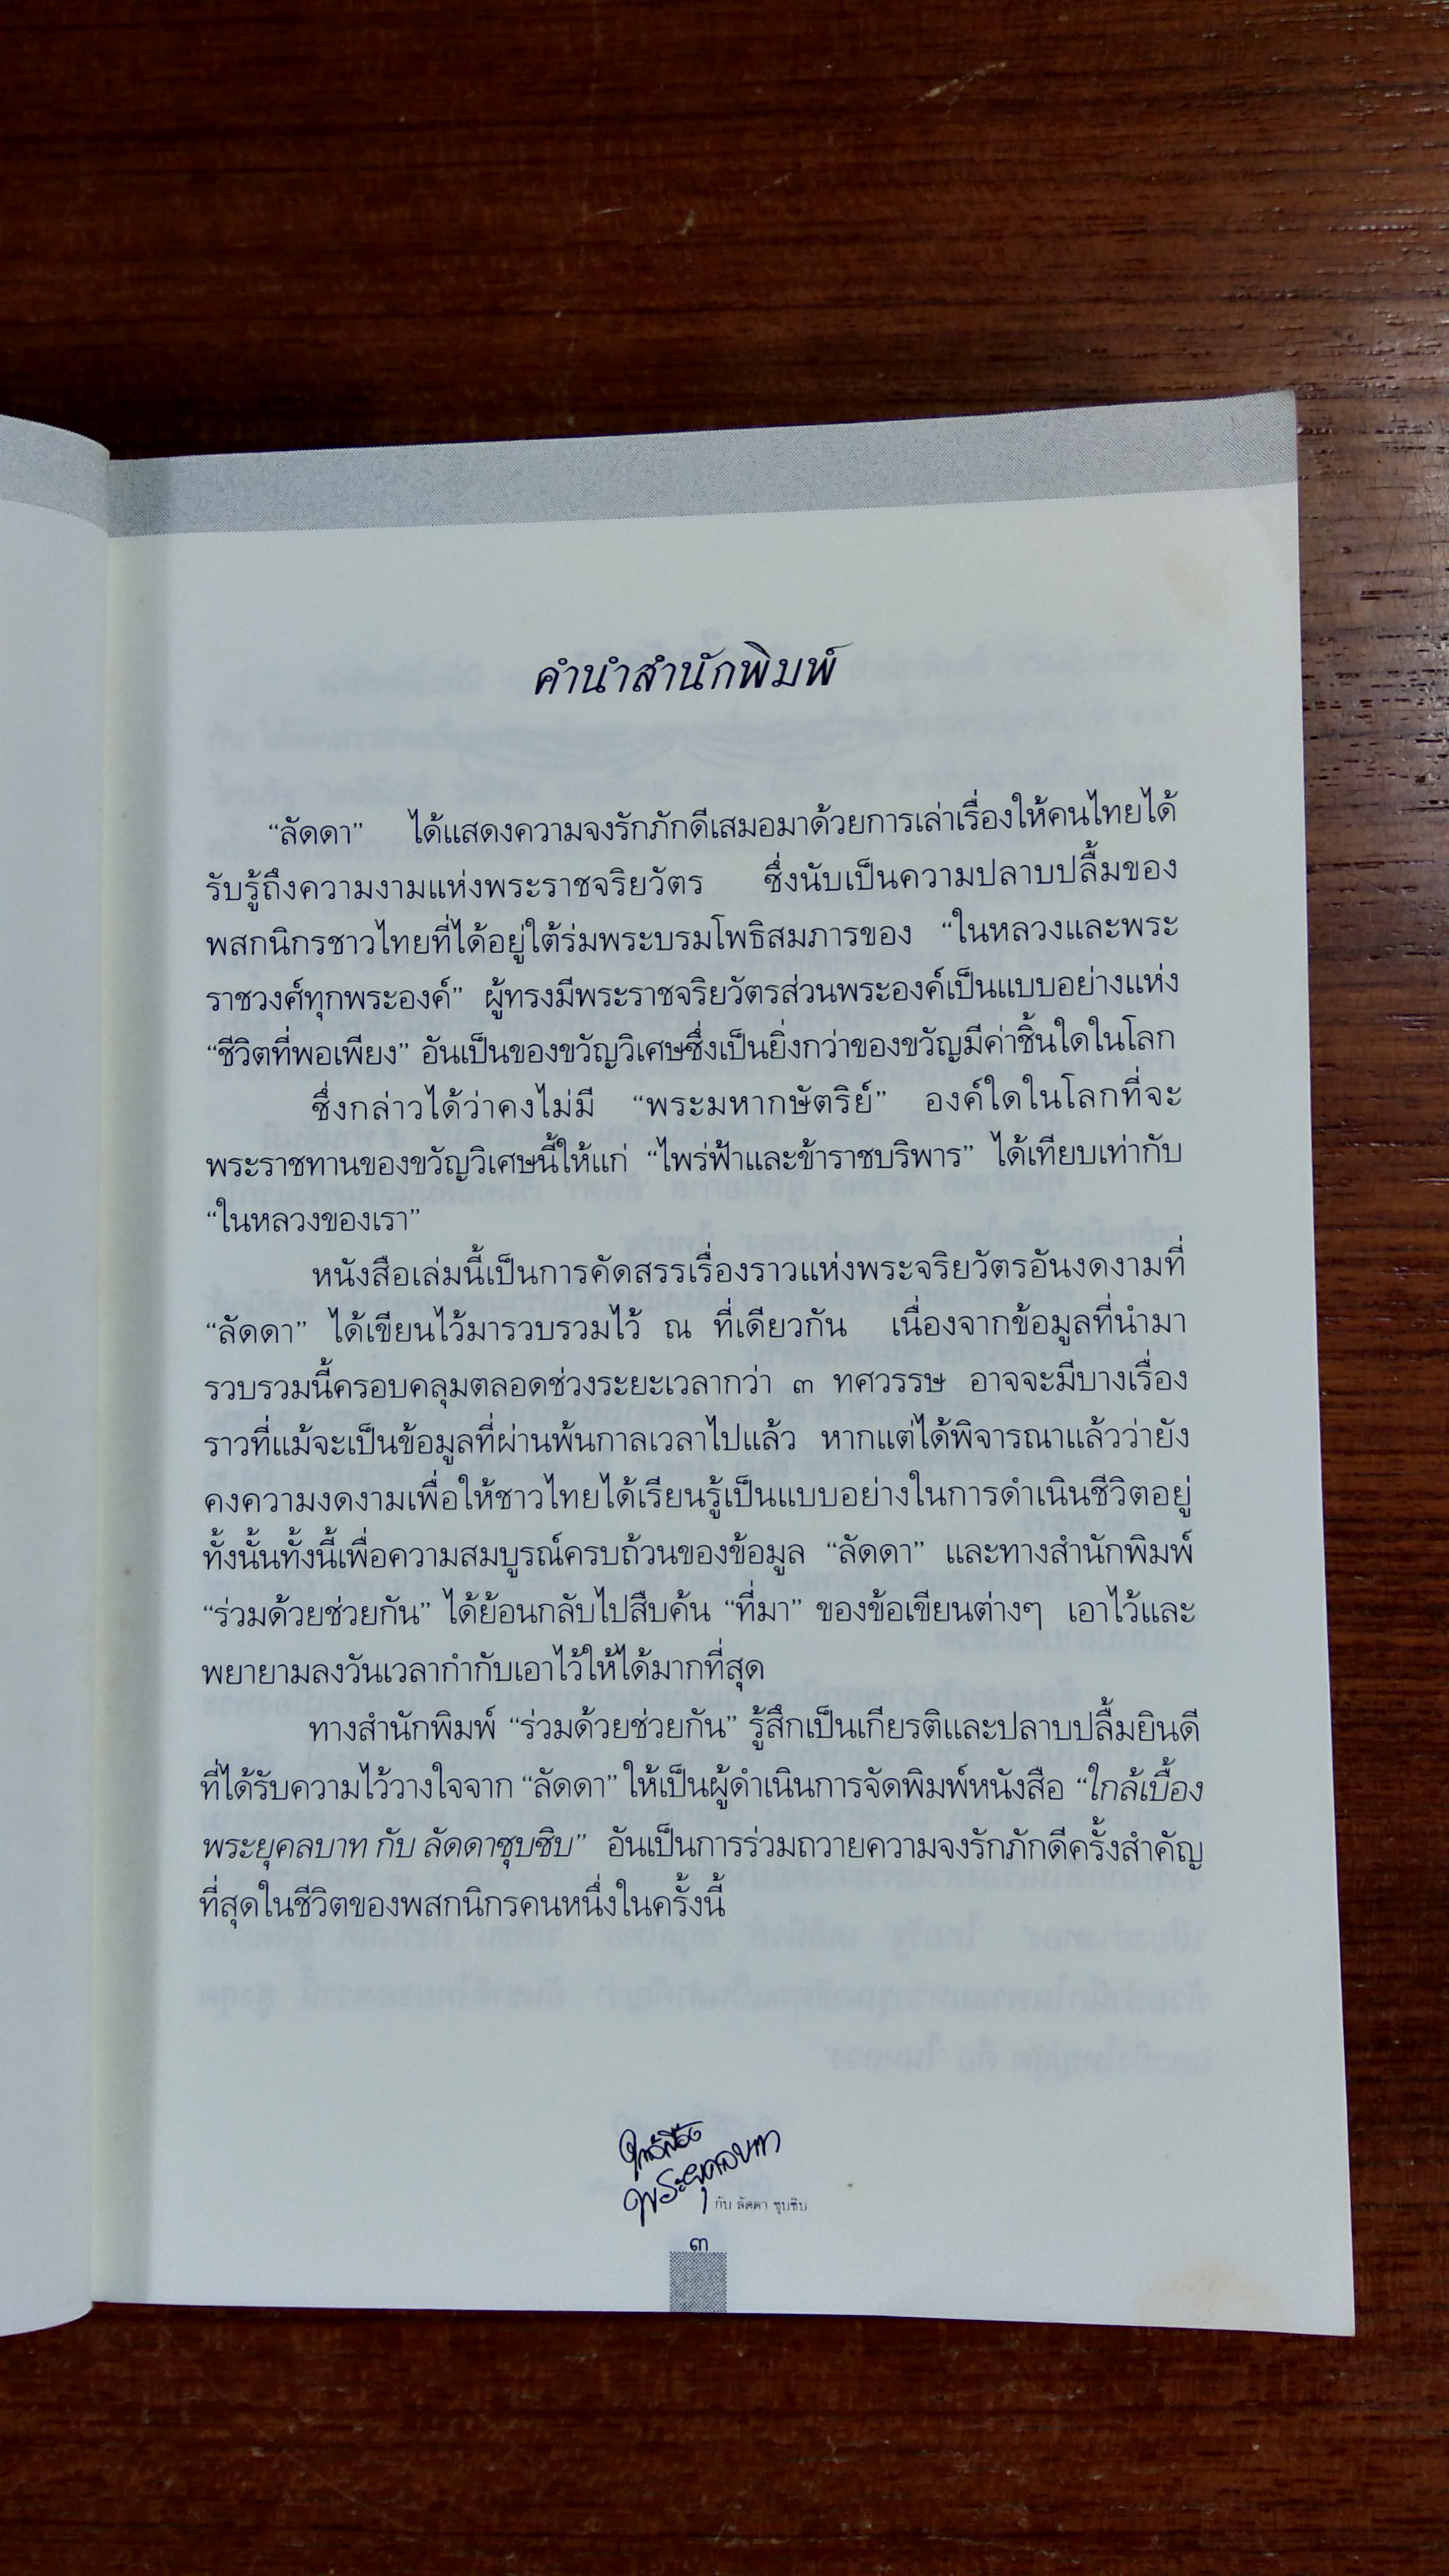 คำนำสำนักพิมพ์
“ลัดดา” ได้แสดงความจงรักภักดีเสมอมาด้วยการเล่าเรื่องให้คนไทยได้
รับรู้ถึงความงามแห่งพระราชจริยวัตร ซึ่งนับเป็นความปลาบปลื้มของ
พสกนิกรชาวไทยที่ได้อยู่ใต้ร่มพระบรมโพธิสมภารของ “ในหลวงและพระ
ราชวงศ์ทุกพระองค์” ผู้ทรงมีพระราชจริยวัตรส่วนพระองค์เป็นแบบอย่างแห่ง
“ชีวิตที่พอเพียง” อันเป็นของขวัญวิเศษซึ่งเป็นยิ่งกว่าของขวัญมีค่าชิ้นใดในโลก
ซึ่งกล่าวได้ว่าคงไม่มี “พระมหากษัตริย์” องค์ใดในโลกที่จะ
พระราชทานของขวัญวิเศษนี้ให้แก่ “ไพร่ฟ้าและข้าราชบริพาร” ได้เทียบเท่ากับ
“ในหลวงของเรา”
หนังสือเล่มนี้เป็นการคัดสรรเรื่องราวแห่งพระจริยวัตรอันงดงามที่
“ลัดดา” ได้เขียนไว้มารวบรวมไว้ ณ ที่เดียวกัน เนื่องจากข้อมูลที่นำมา
รวบรวมนี้ครอบคลุมตลอดช่วงระยะเวลากว่า ๓ ทศวรรษ อาจจะมีบางเรื่อง
ราวที่แม้จะเป็นข้อมูลที่ผ่านพ้นกาลเวลาไปแล้ว หากแต่ได้พิจารณาแล้วว่ายัง
คงความงดงามเพื่อให้ชาวไทยได้เรียนรู้เป็นแบบอย่างในการดำเนินชีวิตอยู่
ทั้งนั้นทั้งนี้เพื่อความสมบูรณ์ครบถ้วนของข้อมูล “ลัดดา” และทางสำนักพิมพ์
“ร่วมด้วยช่วยกัน” ได้ย้อนกลับไปสืบค้น “ที่มา” ของข้อเขียนต่างๆ เอาไว้และ
พยายามลงวันเวลากำกับเอาไว้ให้ได้มากที่สุด
ทางสำนักพิมพ์ “ร่วมด้วยช่วยกัน” รู้สึกเป็นเกียรติและปลาบปลื้มยินดี
ที่ได้รับความไว้วางใจจาก “ลัดดา” ให้เป็นผู้ดำเนินการจัดพิมพ์หนังสือ “ใกล้เบื้อง
พระยุคลบาท กับ ลัดดาซุบซิบ” อันเป็นการร่วมถวายความจงรักภักดีครั้งสำคัญ
ที่สุดในชีวิตของพสกนิกรคนหนึ่งในครั้งนี้
ใกล้เบื้อง
พระยุคลบาท
กับ ลัดดา ซุบซิบ
๓